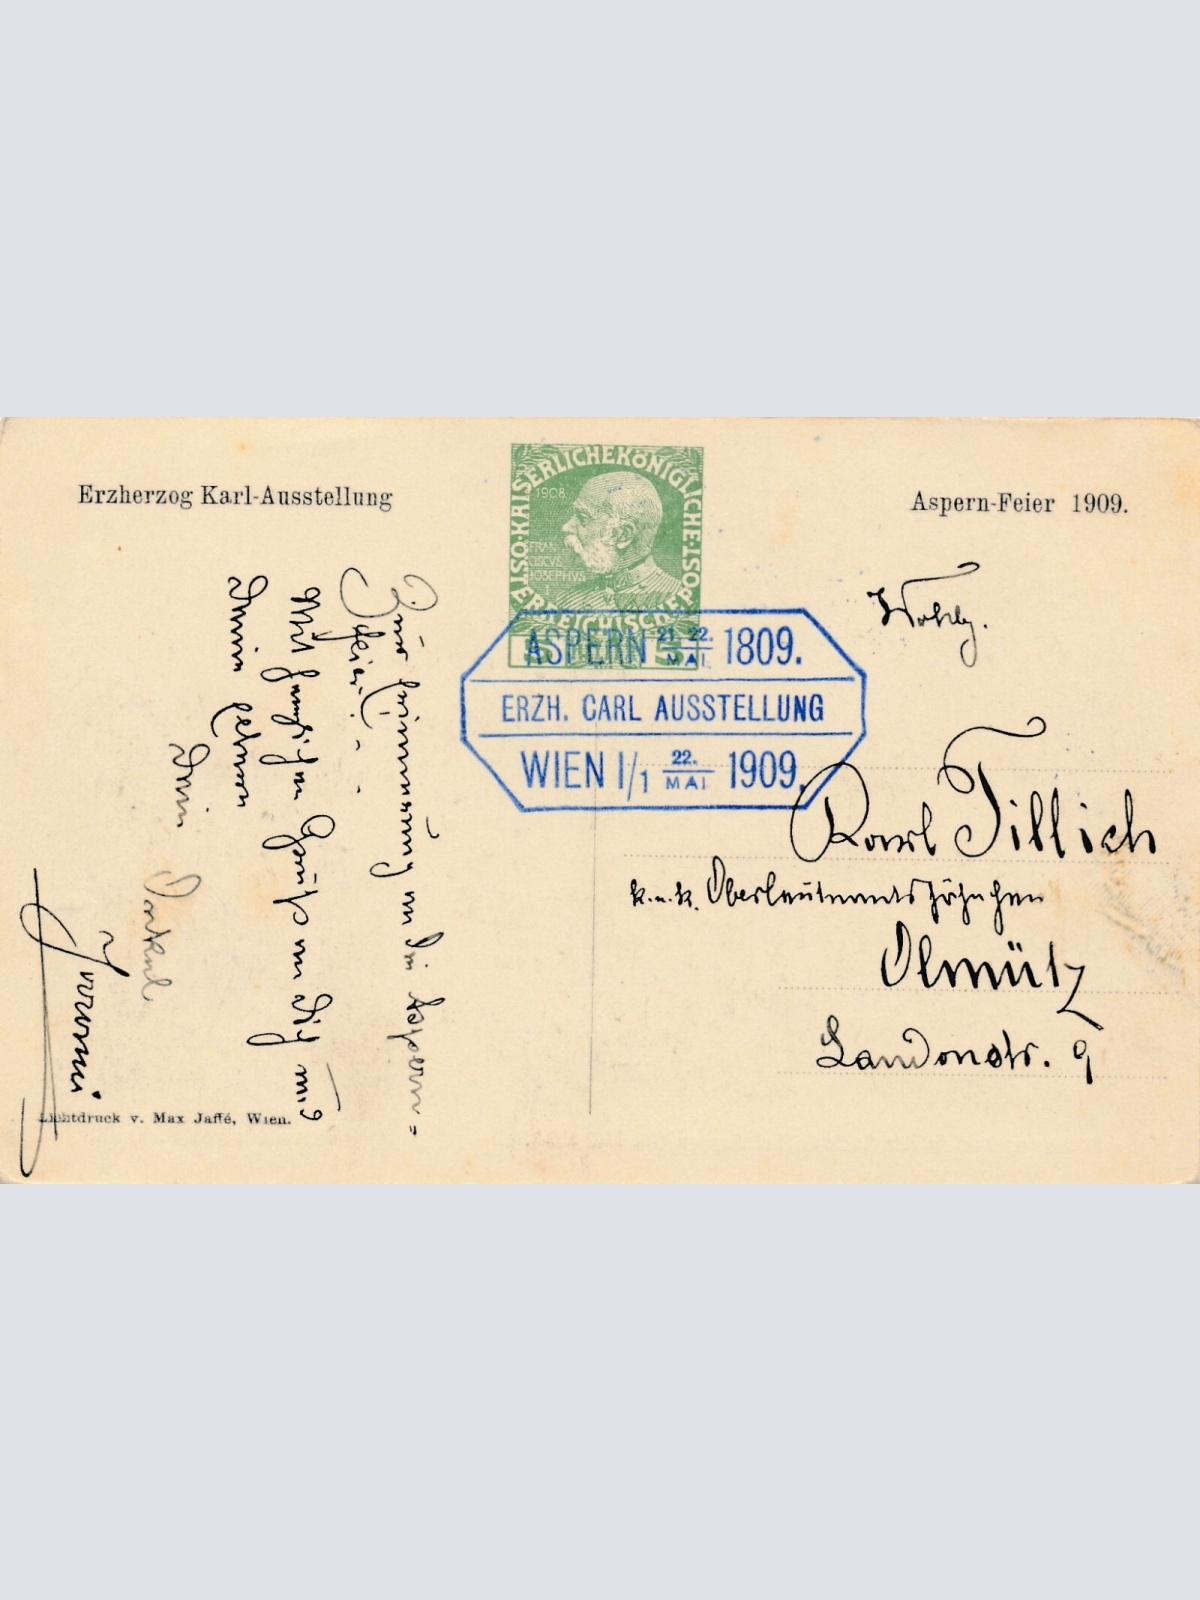 Erzherzog Karl-Ausstellung
Aspern-Feier 1909.
OSTERREICHISCHE POST·KAISERLICHEKÖNIGLICHE
1908
FRAN
CISCVS
JOSEPHVS
5 5
ASPERN 21. 22. MAI. 1809.
ERZH. CARL AUSSTELLUNG
WIEN I/1 22. MAI 1909.
Zur Erinnerung an die Aspern=
Feier! - -
Mit herzlichen Grüßen an Dich und
Deine
Dein
Onkel
Wohlg.
Karl Tillich
k.u.k. Oberleutnantssöhnchen
Olmütz
Laudonstr. 9
Lichtdruck v. Max Jaffé, Wien.